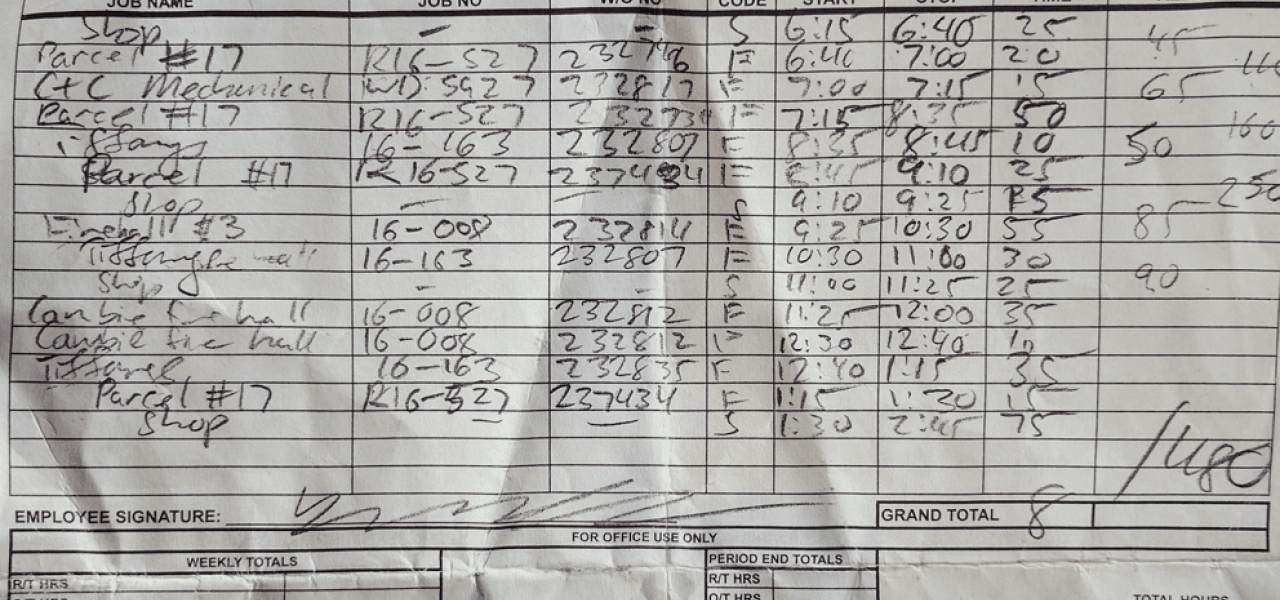 JOB NAME JOB NO W/O NO CODE START STOP TIME
Shop - - S 6:15 6:40 25 45
Parcel #17 R16-527 232746 F 6:40 7:00 20
C+C Mechanical 5927 232817 F 7:00 7:15 15 65
Parcel #17 R16-527 232734 F 7:15 8:35 50 160
Tiffanys 16-163 232807 F 8:35 8:45 10 50
Parcel #17 R16-527 237434 F 8:45 9:10 25
Shop - - S 9:10 9:25 15 250
Firehall #3 16-008 232814 F 9:25 10:30 55 85
16-163 232807 F 10:30 11:00 30
Shop - - S 11:00 11:25 25 90
Cambie fire hall 16-008 232812 F 11:25 12:00 35
Cambie fire hall 16-008 232812 F 12:30 12:40 10
Tiffanes 16-163 232835 F 12:40 1:15 35
Parcel #17 R16-527 237434 F 1:15 1:30 15
Shop - - S 1:30 2:45 75
/480
EMPLOYEE SIGNATURE: GRAND TOTAL 8
FOR OFFICE USE ONLY
WEEKLY TOTALS PERIOD END TOTALS
R/T HRS R/T HRS
O/T HRS O/T HRS TOTAL HOURS